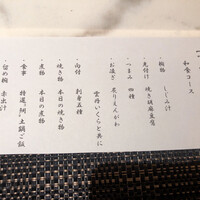 和食コース
・椀物　しじみ汁
・先付け　焼き胡麻豆腐
・つまみ　四種
・お凌ぎ　炙りえんがわ
雲丹いくらと共に
・向付　刺身五種
・焼き物　本日の焼き物
・煮物　本日の煮物
・食事　特選「鯛」土鍋ご飯
・留め椀　赤出汁